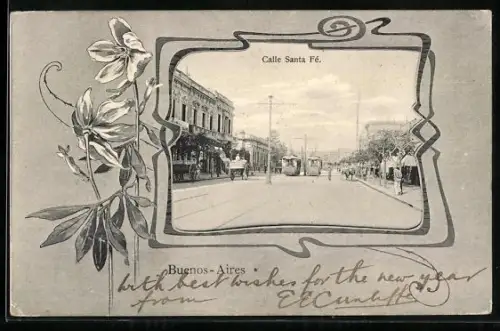 Calle Santa Fé.
Buenos-Aires •
with best wishes for the new year
from E E Cunliffe